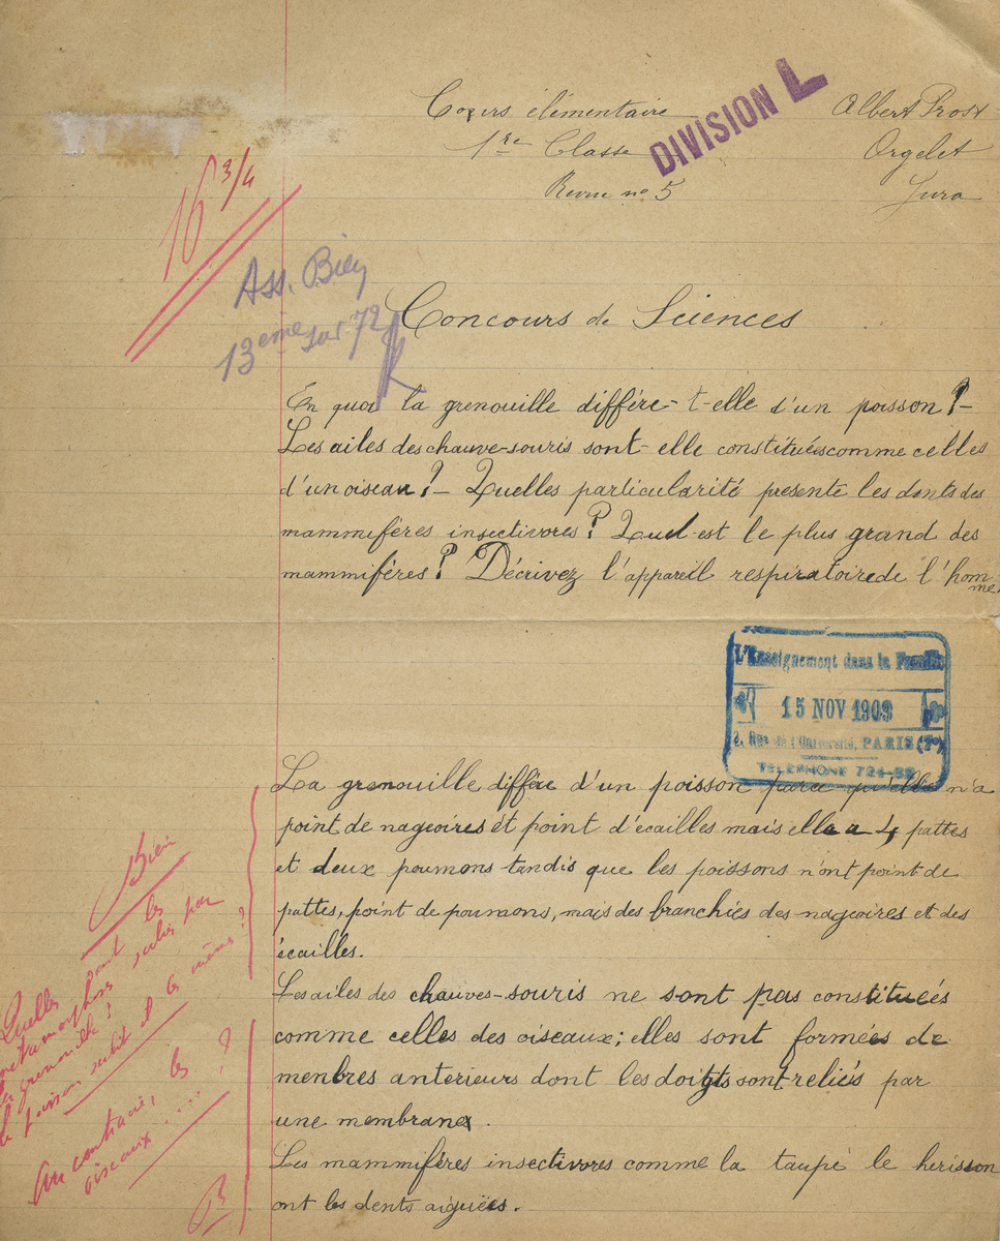 Cours élémentaire
1re Classe
Revue no 5
DIVISION L
Albert Prost
Orgelet
Jura
16 3/4
Ass. Bien
13eme sur 72
Concours de Sciences
En quoi la grenouille diffère-t-elle d'un poisson?-
Les ailes des chauve-souris sont-elle constituées comme celles
d'un oiseau?- Quelles particularité presente les dents des
mammifères insectivores? Quel est le plus grand des
mammifères? Décrivez l'appareil respiratoire de l'hom
me.
L'Enseignement dans la Famille
15 NOV 1909
2, Rue de l'Université, PARIS (7e)
TELEPHONE 724-
La grenouille diffère d'un poisson parce qu'elle n'a
point de nageoires et point d'écailles mais elle a 4 pattes
et deux poumons tandis que les poissons n'ont point de
pattes, point de poumons, mais des branchies des nageoires et des
écailles.
Les ailes des chauves-souris ne sont pas constituées
comme celles des oiseaux; elles sont formées de
menbres anterieurs dont les doigts sont reliés par
une membrane.
Les mammifères insectivores comme la taupe le herisson
ont les dents aiguëes.
Bien
Quelles sont les
métamorphoses subies par
la grenouille?
le poisson subit-il les mêmes?
Au contraire, les
oiseaux ....?
B